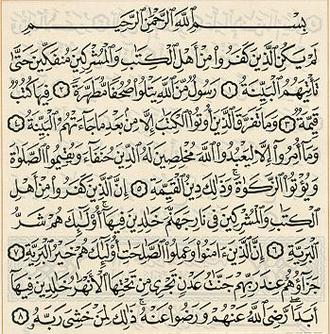 بِسْمِ ٱللَّهِ ٱلرَّحْمَٰنِ ٱلرَّحِيمِ
لَمْ يَكُنِ ٱلَّذِينَ كَفَرُوا۟ مِنْ أَهْلِ ٱلْكِتَٰبِ وَٱلْمُشْرِكِينَ مُنفَكِّينَ حَتَّىٰ
تَأْتِيَهُمُ ٱلْبَيِّنَةُ ١ رَسُولٌ مِّنَ ٱللَّهِ يَتْلُوا۟ صُحُفًا مُّطَهَّرَةً ٢ فِيهَا كُتُبٌ
قَيِّمَةٌ ٣ وَمَا تَفَرَّقَ ٱلَّذِينَ أُوتُوا۟ ٱلْكِتَٰبَ إِلَّا مِنۢ بَعْدِ مَا جَآءَتْهُمُ ٱلْبَيِّنَةُ ٤
وَمَآ أُمِرُوٓا۟ إِلَّا لِيَعْبُدُوا۟ ٱللَّهَ مُخْلِصِينَ لَهُ ٱلدِّينَ حُنَفَآءَ وَيُقِيمُوا۟ ٱلصَّلَوٰةَ
وَيُؤْتُوا۟ ٱلزَّكَوٰةَ ۚ وَذَٰلِكَ دِينُ ٱلْقَيِّمَةِ ٥ إِنَّ ٱلَّذِينَ كَفَرُوا۟ مِنْ أَهْلِ
ٱلْكِتَٰبِ وَٱلْمُشْرِكِينَ فِى نَارِ جَهَنَّمَ خَٰلِدِينَ فِيهَآ ۚ أُو۟لَٰٓئِكَ هُمْ شَرُّ
ٱلْبَرِيَّةِ ٦ إِنَّ ٱلَّذِينَ ءَامَنُوا۟ وَعَمِلُوا۟ ٱلصَّٰلِحَٰتِ أُو۟لَٰٓئِكَ هُمْ خَيْرُ ٱلْبَرِيَّةِ ٧
جَزَآؤُهُمْ عِندَ رَبِّهِمْ جَنَّٰتُ عَدْنٍ تَجْرِى مِن تَحْتِهَا ٱلْأَنْهَٰرُ خَٰلِدِينَ فِيهَآ
أَبَدًا ۖ رَّضِىَ ٱللَّهُ عَنْهُمْ وَرَضُوا۟ عَنْهُ ۚ ذَٰلِكَ لِمَنْ خَشِىَ رَبَّهُۥ ٨